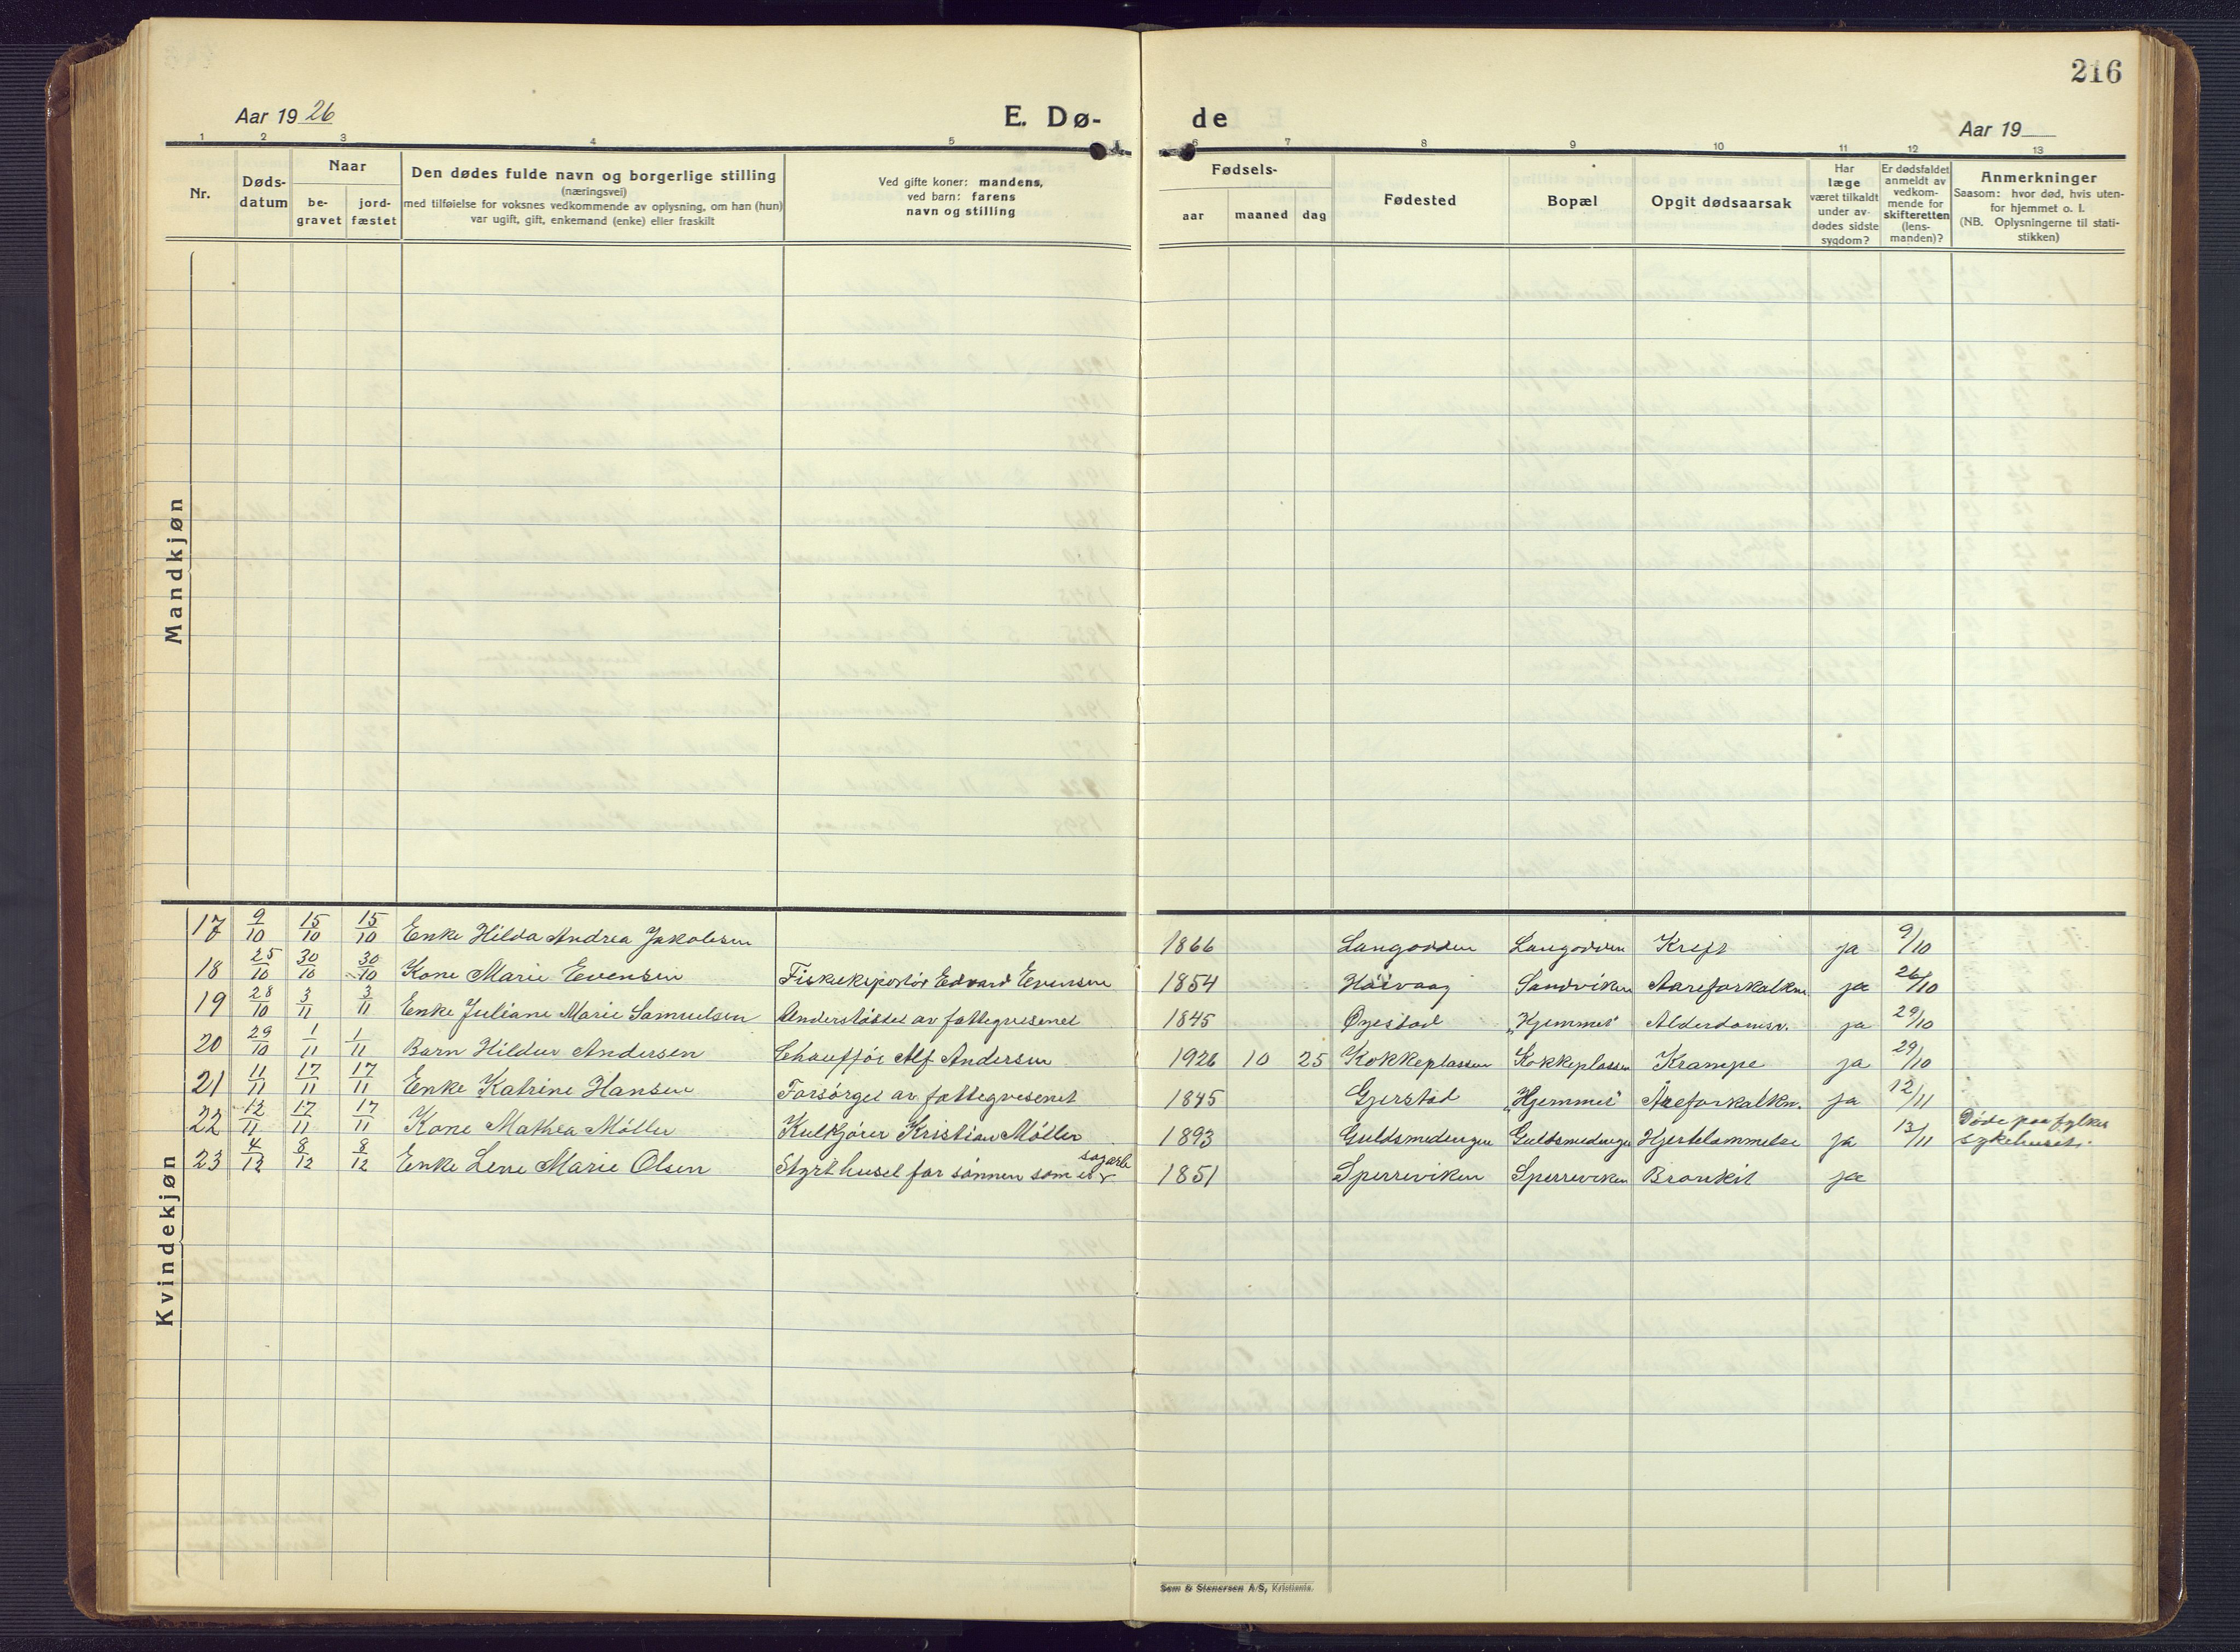 216
Aar 1926
E. Dø-
de
Aar 19
1 2 3 4 5 6 7 8 9 10 11 12 13
Nr.
Døds-
datum
Naar
be-
gravet
jord-
fæstet
Den dødes fulde navn og borgerlige stilling
(næringsvei)
med tilføielse for voksnes vedkommende av oplysning, om han (hun)
var ugift, gift, enkemand (enke) eller fraskilt
Ved gifte koner: mandens,
ved barn: farens
navn og stilling
Fødsels-
aar maaned dag
Fødested
Bopæl
Opgit dødsaarsak
Har
læge
været tilkaldt
under av-
dødes sidste
sygdom?
Er dødsfaldet
anmeldt av
vedkom-
mende for
skifteretten
(lens-
manden)?
Anmerkninger
Saasom: hvor død, hvis uten-
for hjemmet o. l.
(NB. Oplysningerne til stati-
stikken)
Mandkjøn
Kvindekjøn
17 9/10 15/10 15/10 Enke Hilda Andrea Jakobsen 1866 Langodden Langodden Kreft ja 9/10
18 25/10 30/10 30/10 Kone Marie Evensen Fiskeksportør Edvard Evensen 1854 Høivaag Sandviken Aareforkalkn. ja 26/10
19 28/10 3/11 3/11 Enke Juliane Marie Samuelsen Understøttet av fattigvesenet 1845 Øyestad "Hjemmet" Alderdomsv. ja 29/10
20 29/10 1/11 1/11 Barn Hildur Andersen Chauffør Alf Andersen 1926 10 25 Kokkeplassen Kokkeplassen Krampe ja 29/10
21 11/11 17/11 17/11 Enke Katrine Hansen Forsørget av fattigvesenet 1845 Gjerstad "Hjemmet" Åreforkalkn. ja 12/11
22 12/11 17/11 17/11 Kone Mathea Möller Kulkjører Kristian Möller 1893 Guldsmedengen Guldsmedengen Hjertelammelse ja 13/11 Døde paa fylkes
sykehuset.
23 4/12 8/12 8/12 Enke Lene Marie Olsen Styrt huset for sønnen som er sagarb. 1851 Sperreviken Sperreviken Bronkit ja
Sem & Stenersen A/S, Kristiania.